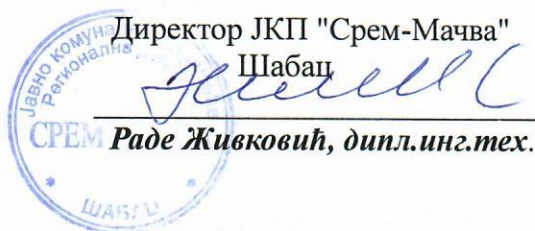 Директор ЈКП "Срем-Мачва"
Шабац
Раде Живковић, дипл.инг.тех.
Јавно комуна
Регионална
СРЕМ
ШАБАЦ